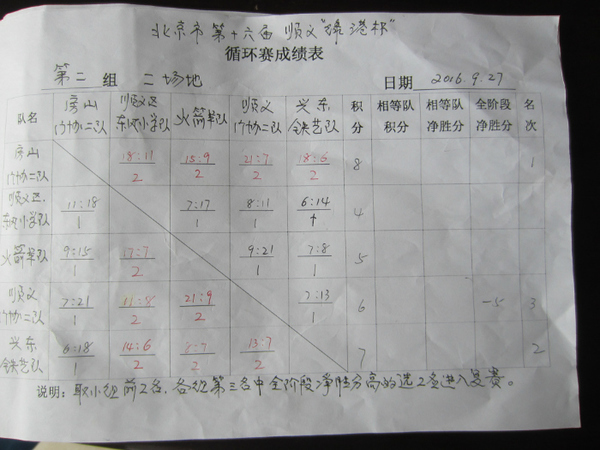 北京市第十六届 顺义"绿港杯"
循环赛成绩表
第二 组 二 场地 日期 2016.9.27
队名 房山门协二队 顺义区东风小学队 火箭军队 顺义门协二队 兴东铁艺队 积分 相等队积分 相等队净胜分 全阶段净胜分 名次
房山门协二队 18:11 2 15:9 2 21:7 2 18:6 2 8 1
顺义区东风小学队 11:18 1 7:17 1 8:11 1 6:14 1 4
火箭军队 9:15 1 17:7 2 9:21 1 7:8 1 5
顺义门协二队 7:21 1 11:8 2 21:9 2 7:13 1 6 -5 3
兴东铁艺队 6:18 1 14:6 2 8:7 2 13:7 2 7 2
说明：取小组前2名，各组第三名中全阶段净胜分高的选2名进入复赛。